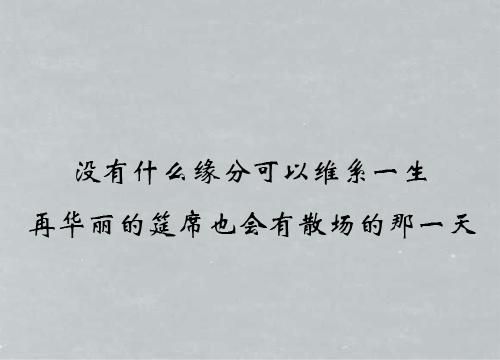 没有什么缘分可以维系一生
再华丽的筵席也会有散场的那一天